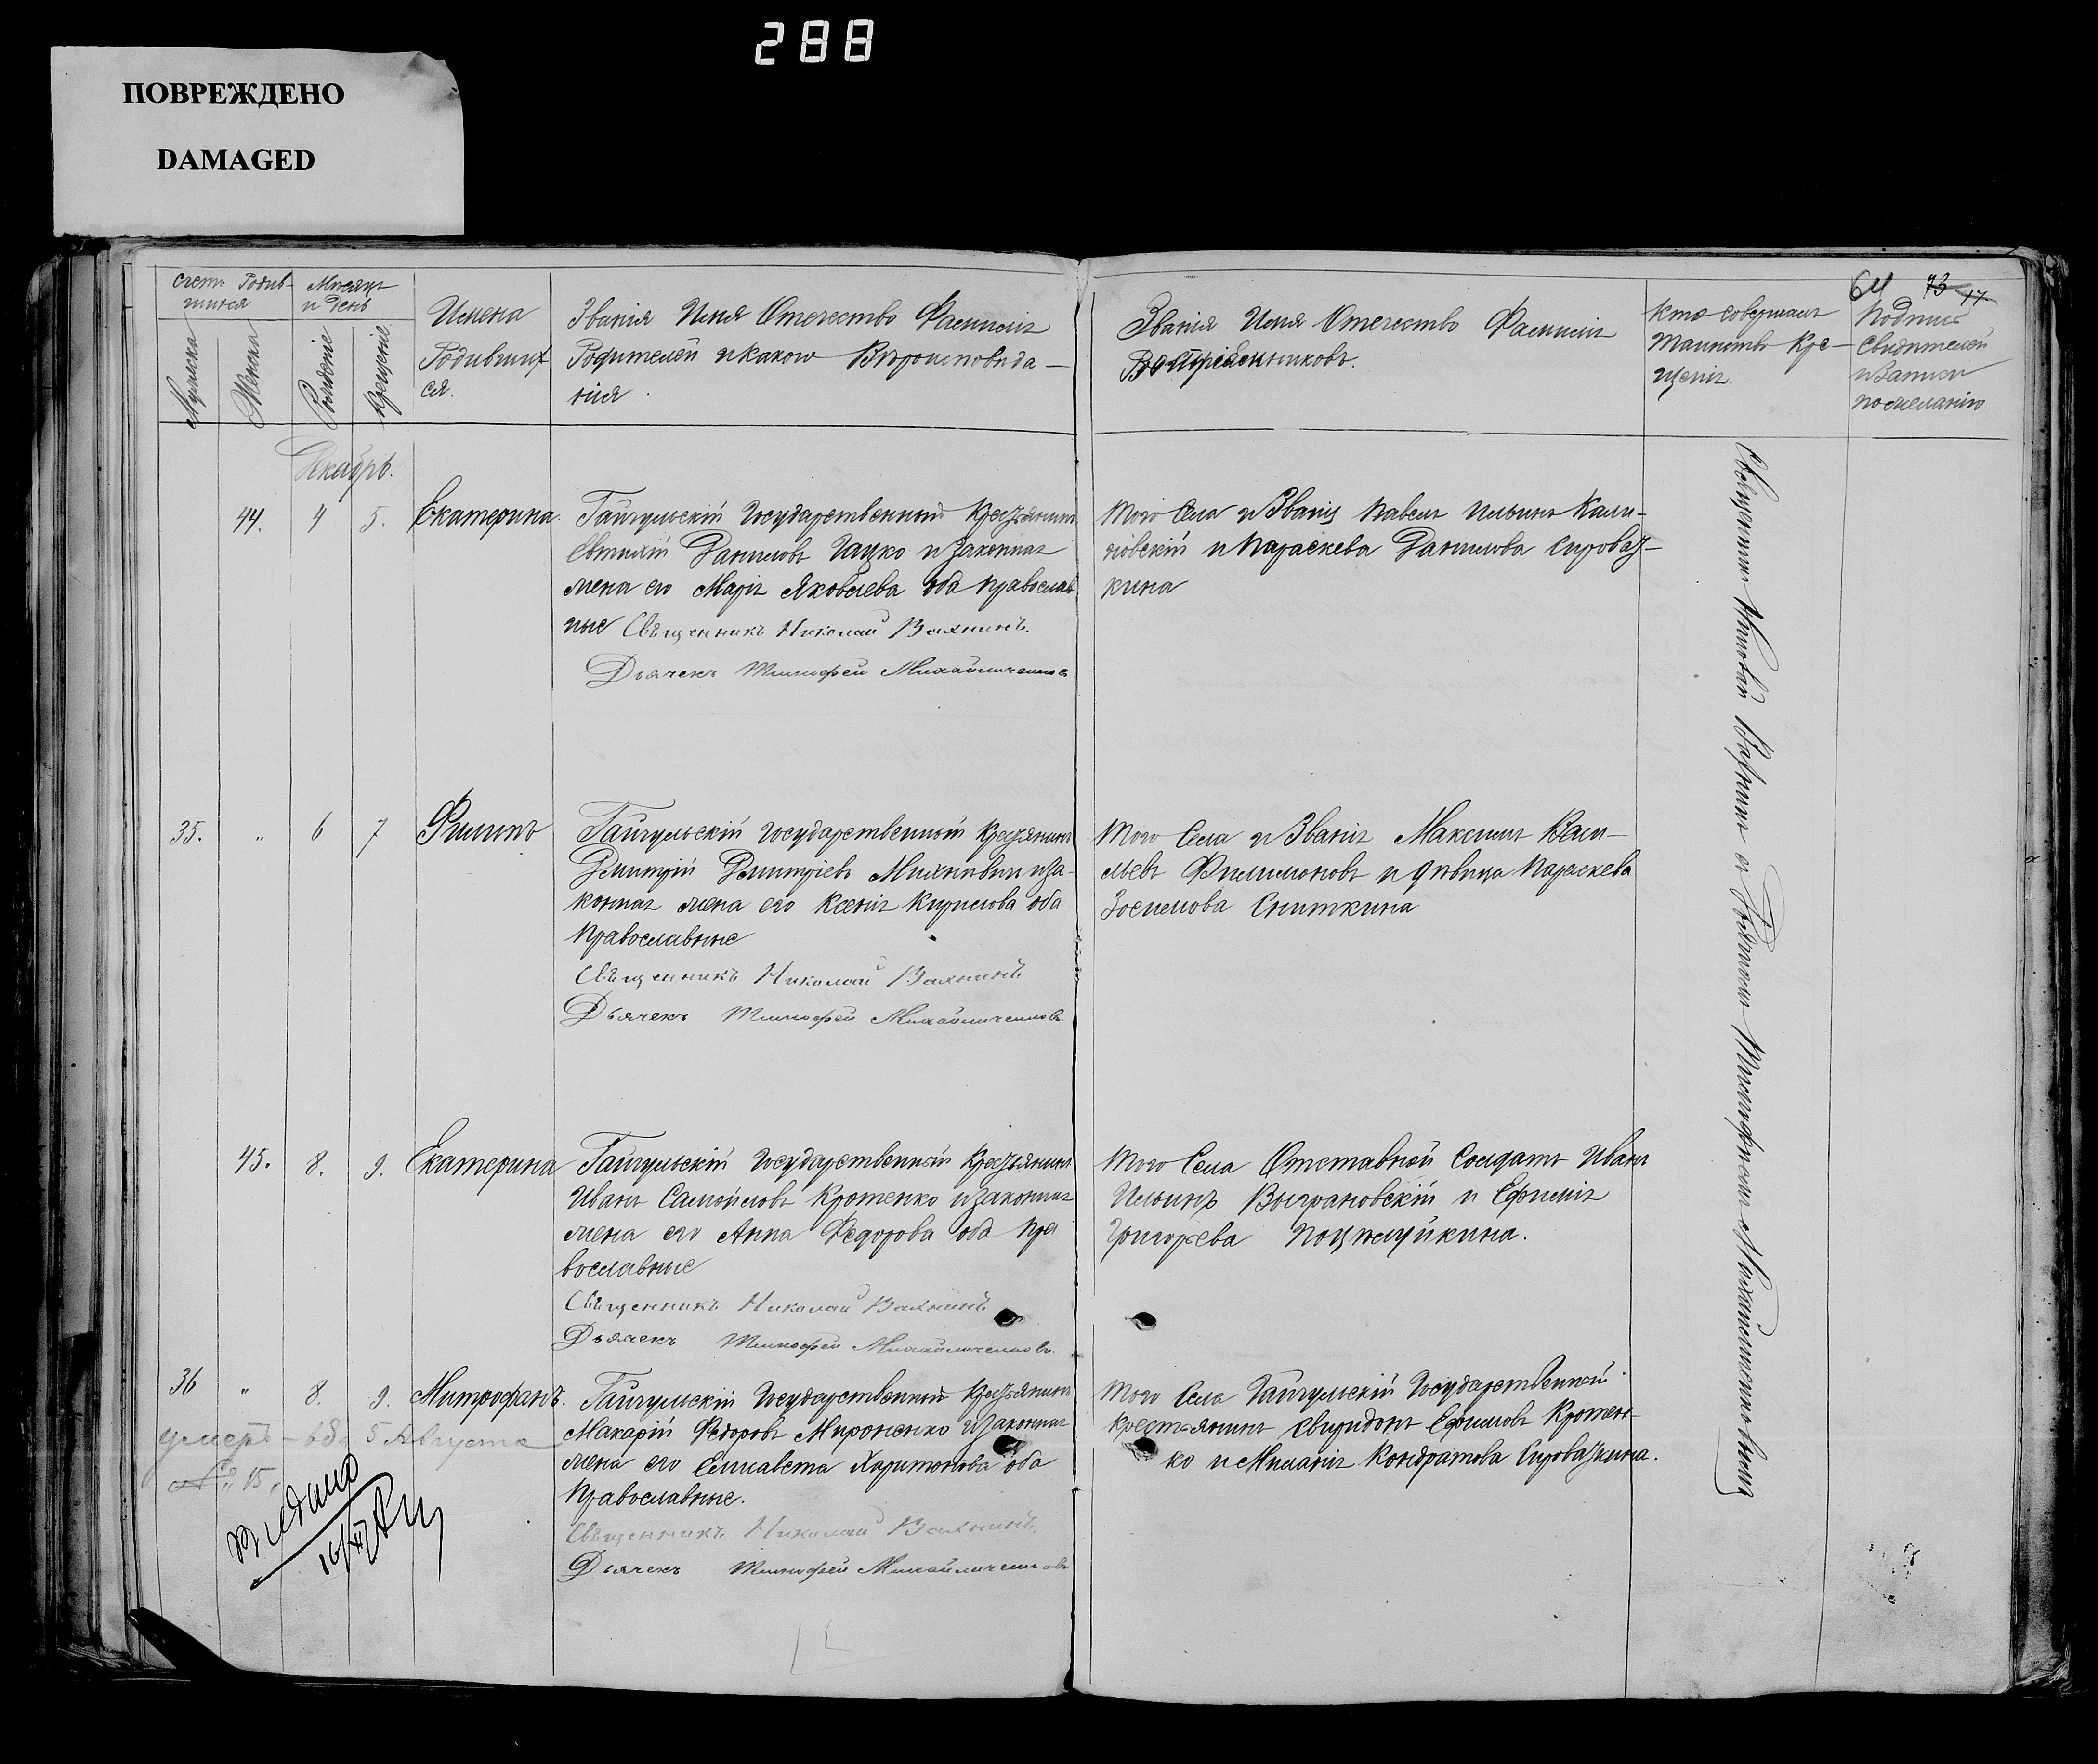 288
ПОВРЕЖДЕНО
DAMAGED
64 73 17
Счетъ Родив-
шихся
Мужеска
Женска
Месяцъ
и день
Рожденіе
Крещеніе
Имена
Родившихъ
ся.
Званія Имя Отечество Фамилія
Родителей и какого Вероисповеда—
нія
Званія Имя Отечество Фамилія
Воспріемниковъ.
Кто совершалъ
таинство Кре—
щенія.
Подпись
Свидетелей
и записи
по желанію
Декабрь.
44. 4 5. Екатерина
Гангульскій Государственный Крестьянинъ
Евтихій Даниловъ Гацко и законная
жена его Марія Яковлева оба православ
ные Священникъ Николай Вахнинъ.
Дьячекъ Тимофей Михайличенковъ
Того Села и Званія Павелъ Ильинъ Кали-
новскій и Параскева Данилова Сироваз—
кина
35. „ 6 7 Филипъ
Гангульскій Государственный Крестьянинъ
Дмитрій Дмитріевъ Михневичъ и за-
конная жена его Ксенія Кирилова оба
Православные
Священникъ Николай Вахнинъ
Дьячекъ Тимофей Михайличенковъ.
Того Села и Званія Максимъ Васи—
льевъ Филимоновъ и девица Параскева
Зосимова Сниткина
45. 8. 9. Екатерина
Гангульскій Государственный Крестьянинъ
Иванъ Самойловъ Кротенко и законная
жена его Анна Федорова оба пра
вославные
Священникъ Николай Вахнинъ
Дьячекъ Тимофей Михайличенковъ.
Того Села Отставной Солдатъ Иванъ
Ильинъ Выграновскій и Ефимія
Григорьева Поцелуйкина.
36 „ 8. 9. Митрофанъ.
Гангульскій Государственный Крестьянинъ
Макарій Федоровъ Мироненко и законная
жена его Елисавета Харитонова оба
Православные.
Священникъ Николай Вахнинъ.
Дьячекъ Тимофей Михайличенковъ
Того Села Гангульскій Государственной
крестьянинъ Свиридонъ Ефимовъ Кротен-
ко и Меланія Кондратова Сировазкина.
умеръ 5 Августа
№ 15.
Выдано
16/XI
Священникъ Николай Вахнинъ съ Дьячкомъ Тимофеемъ Михайличенковымъ